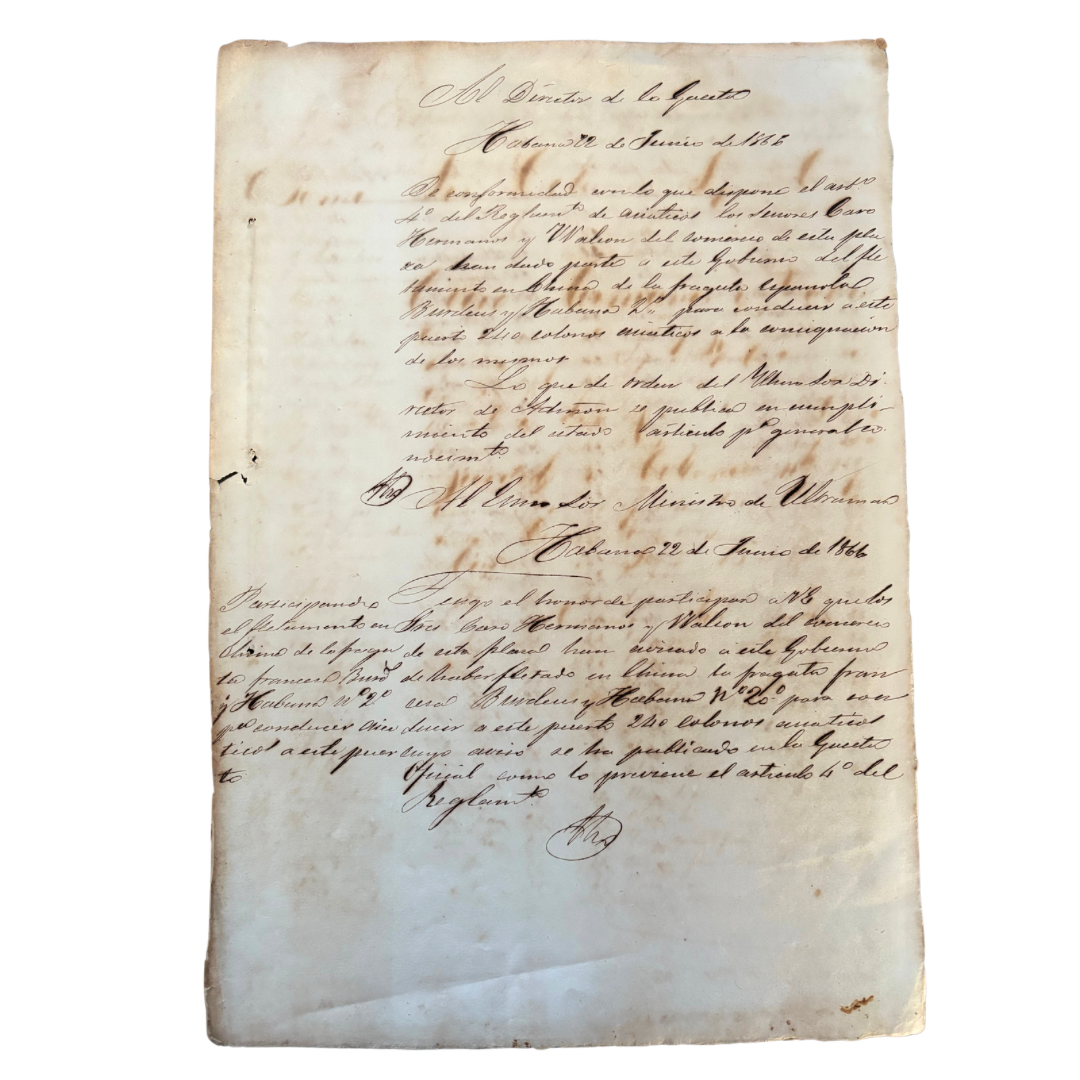 Al Director de la Gaceta
Habana 22 de Junio de 1866
De conformidad con lo que dispone el artº
4º del Reglamtº de asiaticos los Senores Caro
Hermanos y Walson del comercio de esta pla
za han dado parte a este Gobierno del fle
tamento en China de la fragata española
Burdeus y Habana 2º para conducir a este
puerto 240 colonos asiaticos a la consignacion
de los mismos
Lo que de orden del Sor Di-
rector de Admon se publica en cumpli-
miento del citado articulo pª general co-
nocimtº
Al Excmo Sor Ministro de Ultramar
Habana 22 de Junio de 1866
Participando
el fletamento en
China de la fraga
ta francesa Burds
y Habana Nº 2º
pª conducir asia
ticos a este puer
to
Tengo el honor de participar a VE que los
Sres Caro Hermanos y Walson del comercio
de esta plaza han avisado a este Gobierno
de haber fletado en China la fragata fran
cesa Burdeus y Habana Nº 2º para con
ducir a este puerto 240 colonos asiaticos
cuyo aviso se ha publicado en la Gaceta
Oficial como lo previene el articulo 4º del
Reglamtº